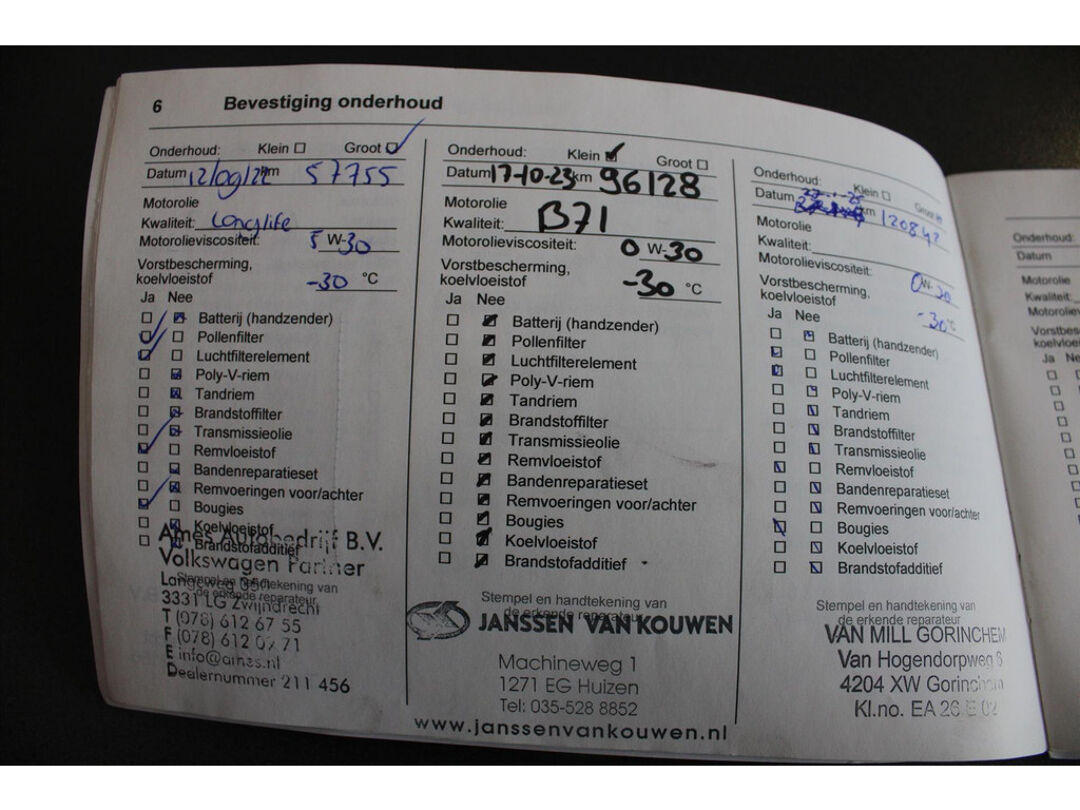 6 Bevestiging onderhoud
Onderhoud: Klein Groot
Datum 12/09/22 km 57755
Motorolie
Kwaliteit: Longlife
Motorolieviscositeit: 5 W-30
Vorstbescherming,
koelvloeistof -30 °C
Ja Nee
Batterij (handzender)
Pollenfilter
Luchtfilterelement
Poly-V-riem
Tandriem
Brandstoffilter
Transmissieolie
Remvloeistof
Bandenreparatieset
Remvoeringen voor/achter
Bougies
Koelvloeistof
Brandstofadditief
Ames Autobedrijf B.V.
Volkswagen Partner
Stempel en handtekening van
de erkende reparateur
3331 LG Zwijndrecht
T (078) 612 67 55
F (078) 612 02 71
E info@ames.nl
Dealernummer 211 456
Onderhoud: Klein Groot
Datum 17-10-23 km 96128
Motorolie
Kwaliteit: B71
Motorolieviscositeit: 0 W-30
Vorstbescherming,
koelvloeistof -30 °C
Ja Nee
Batterij (handzender)
Pollenfilter
Luchtfilterelement
Poly-V-riem
Tandriem
Brandstoffilter
Transmissieolie
Remvloeistof
Bandenreparatieset
Remvoeringen voor/achter
Bougies
Koelvloeistof
Brandstofadditief
Stempel en handtekening van
de erkende reparateur
JANSSEN VAN KOUWEN
Machineweg 1
1271 EG Huizen
Tel: 035-528 8852
www.janssenvankouwen.nl
Onderhoud: Klein Groot
Datum km 120842
Motorolie
Kwaliteit:
Motorolieviscositeit: 0W-30
Vorstbescherming,
koelvloeistof -30°C
Ja Nee
Batterij (handzender)
Pollenfilter
Luchtfilterelement
Poly-V-riem
Tandriem
Brandstoffilter
Transmissieolie
Remvloeistof
Bandenreparatieset
Remvoeringen voor/achter
Bougies
Koelvloeistof
Brandstofadditief
Stempel en handtekening van
de erkende reparateur
VAN MILL GORINCHEM
Van Hogendorpweg 6
4204 XW Gorinchem
Kl.no. EA 26 E 02
Onderhoud:
Datum
Motorolie
Ja